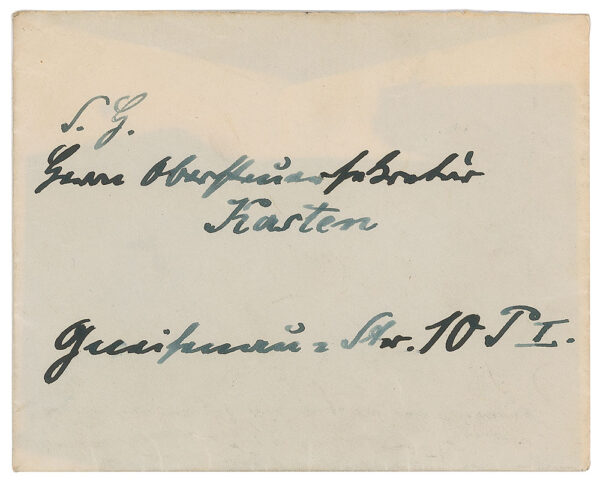 S. H.
Herrn Obersteuersekretär
Kasten
Gneisenau = Str. 10 P I.